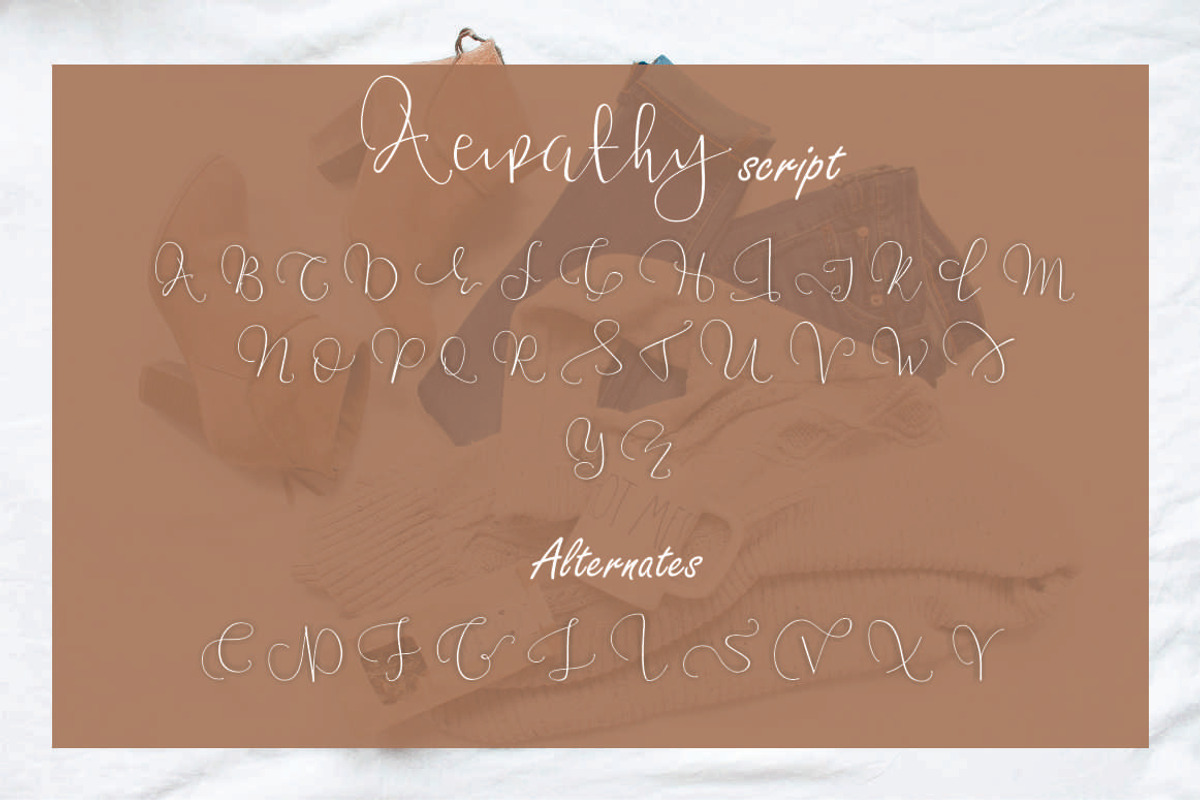 Aeipathy script
A B C D E F G H I J K L M
N O P Q R S T U V W X
Y Z
Alternates
C D F G I L S V X Y